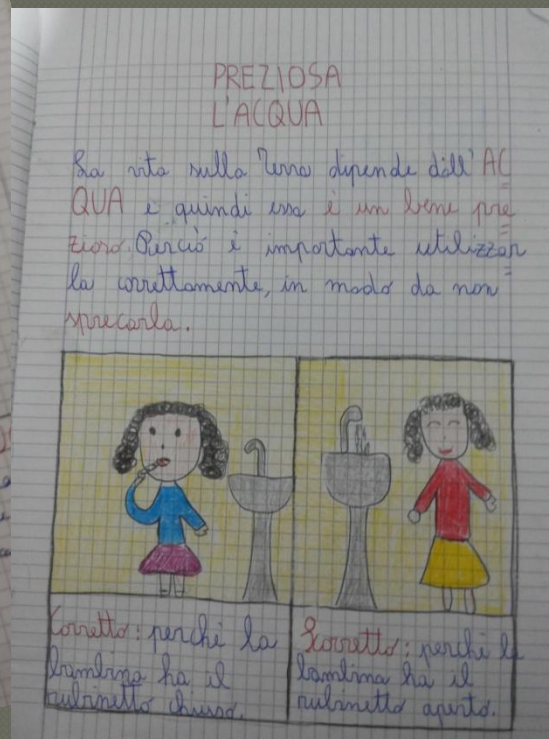 PREZIOSA
L'ACQUA
La vita sulla Terra dipende dall'AC=
QUA e quindi essa è un bene pre=
zioso. Perciò è importante utilizzar=
la correttamente, in modo da non
sprecarla.
Corretto: perché la
bambina ha il
rubinetto chiuso.
Scorretto: perché la
bambina ha il
rubinetto aperto.